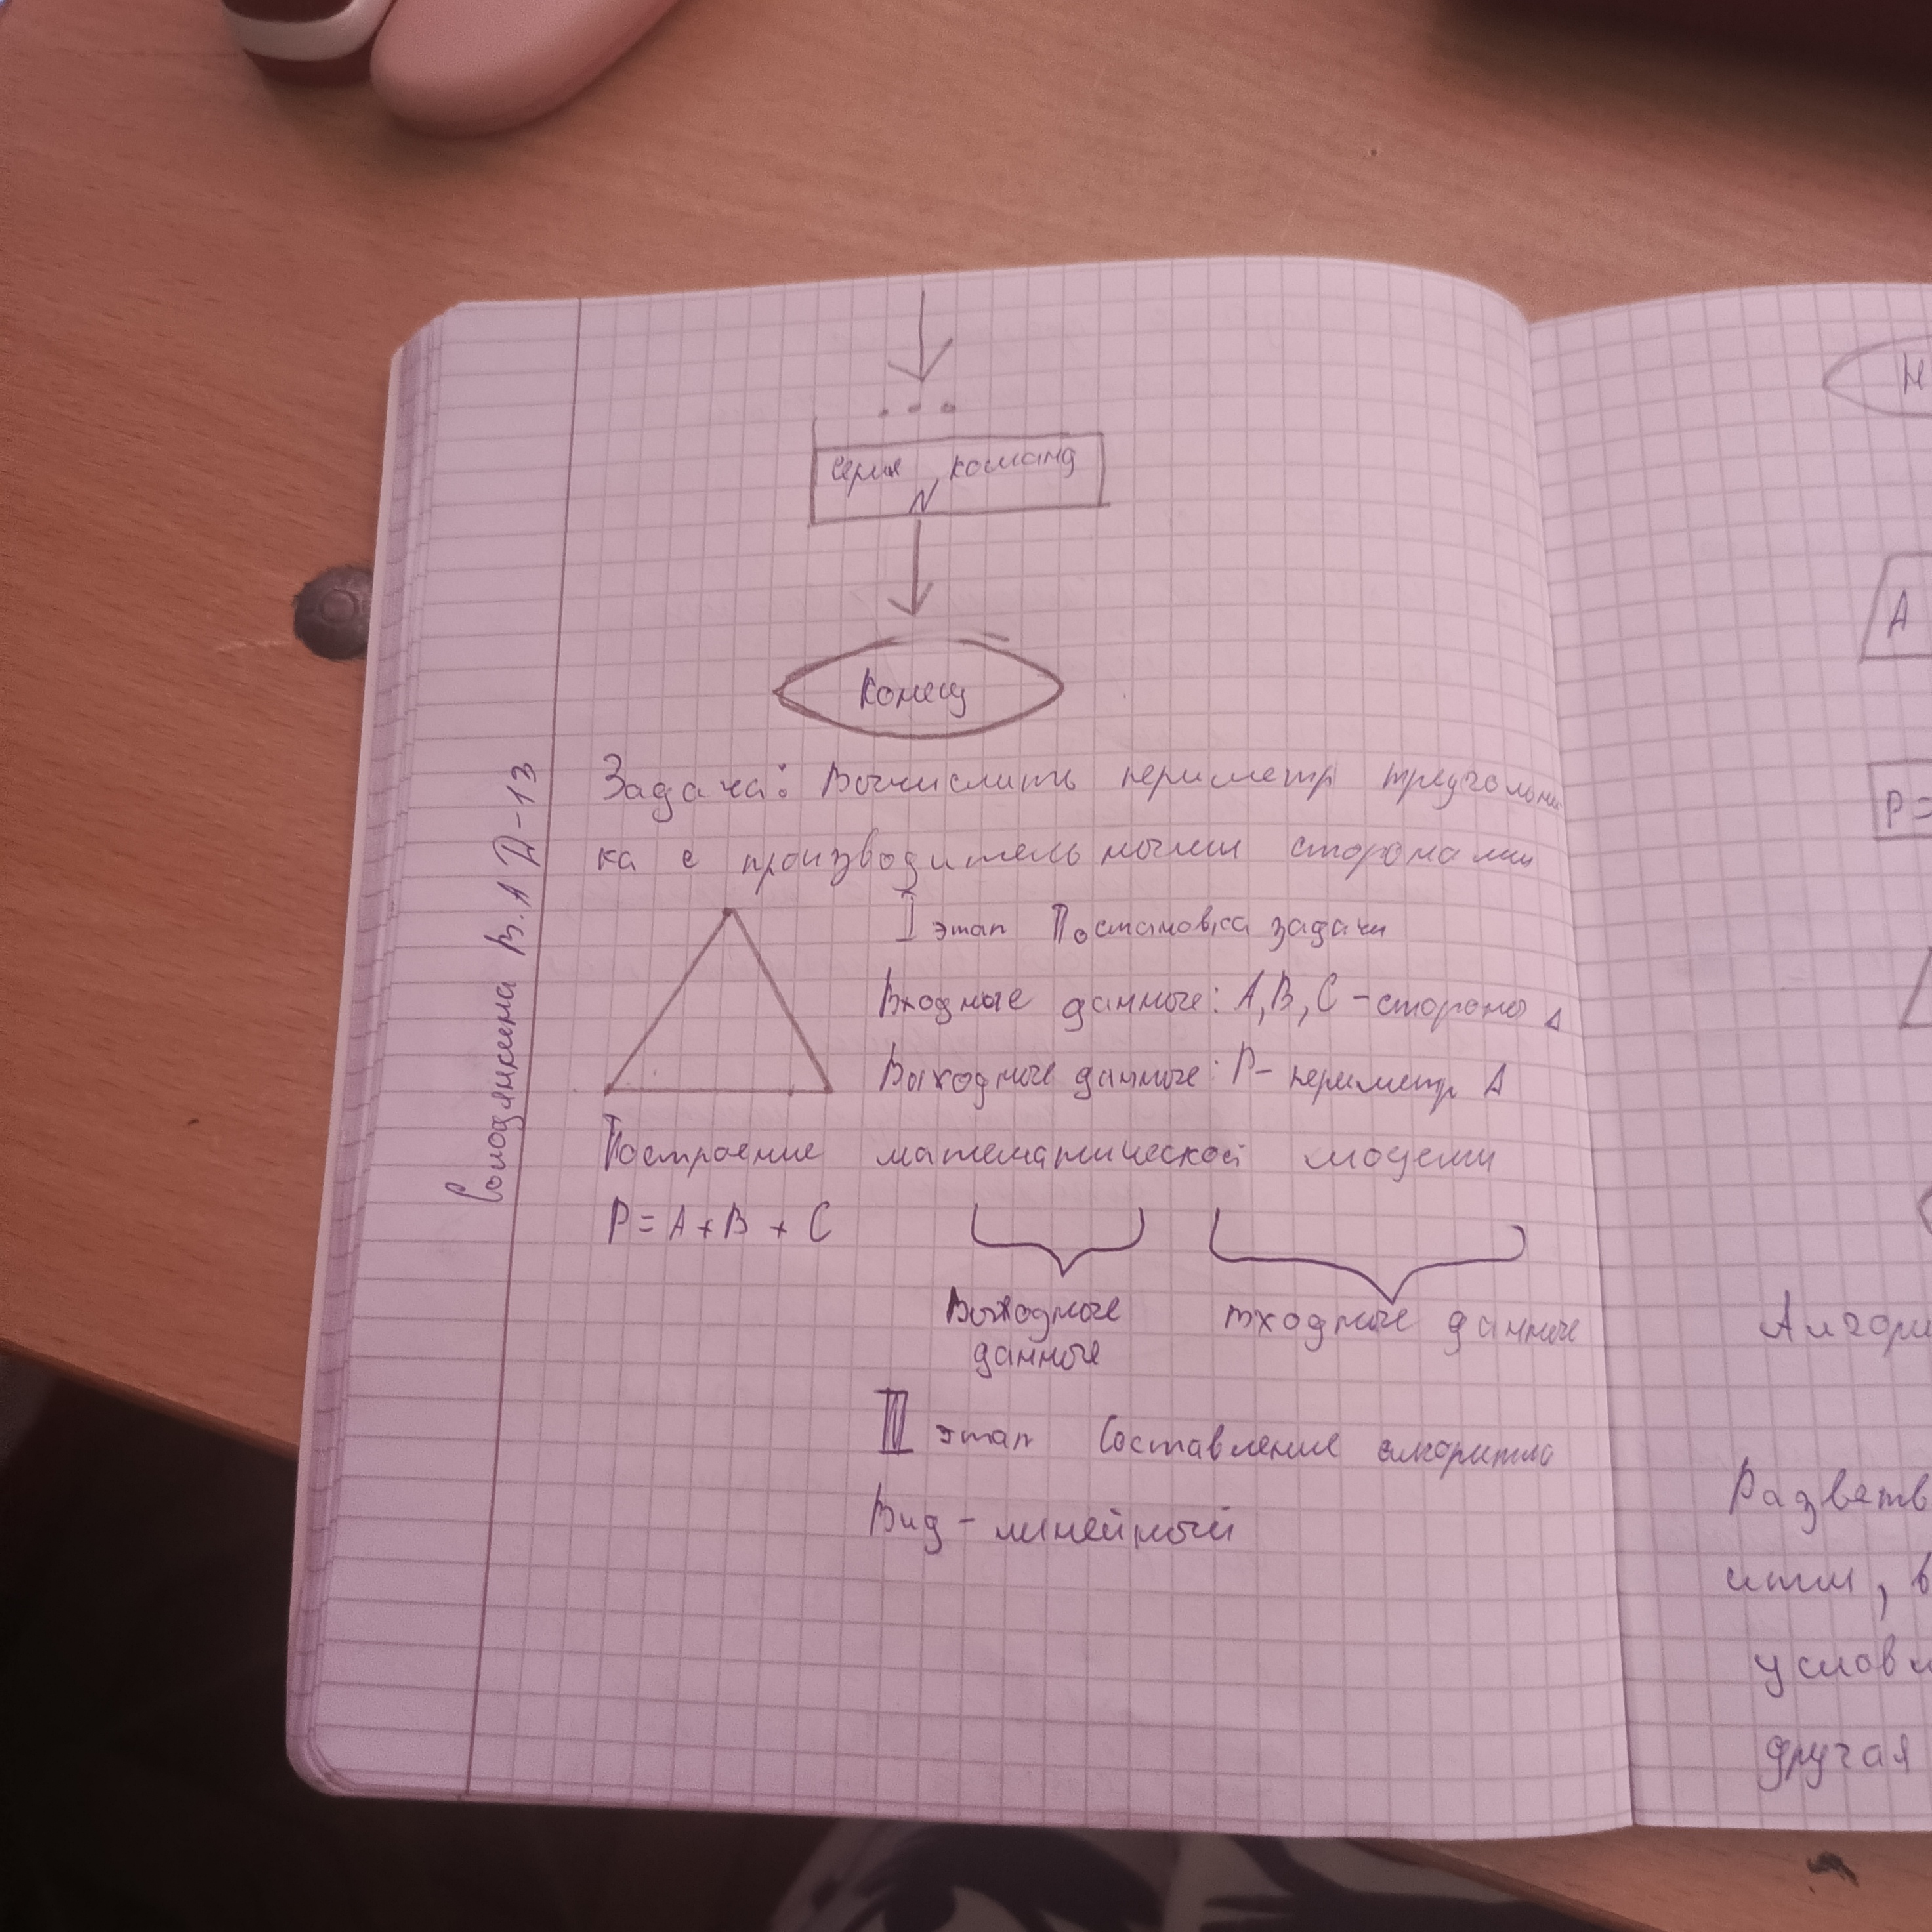 серия команд
N
Конец
Задача: Вычислить периметр треугольни-
ка с производительными сторонами
I этап Постановка задачи
Входные данные: A, B, C - стороны Δ
Выходные данные: P - периметр Δ
Построение математической модели
P = A + B + C
Выходные
данные
входные данные
II этап Составление алгоритма
Вид - линейный
В. А Д-13
Н
A
P =
Алгори
Разветв
ити, в
услови
другая